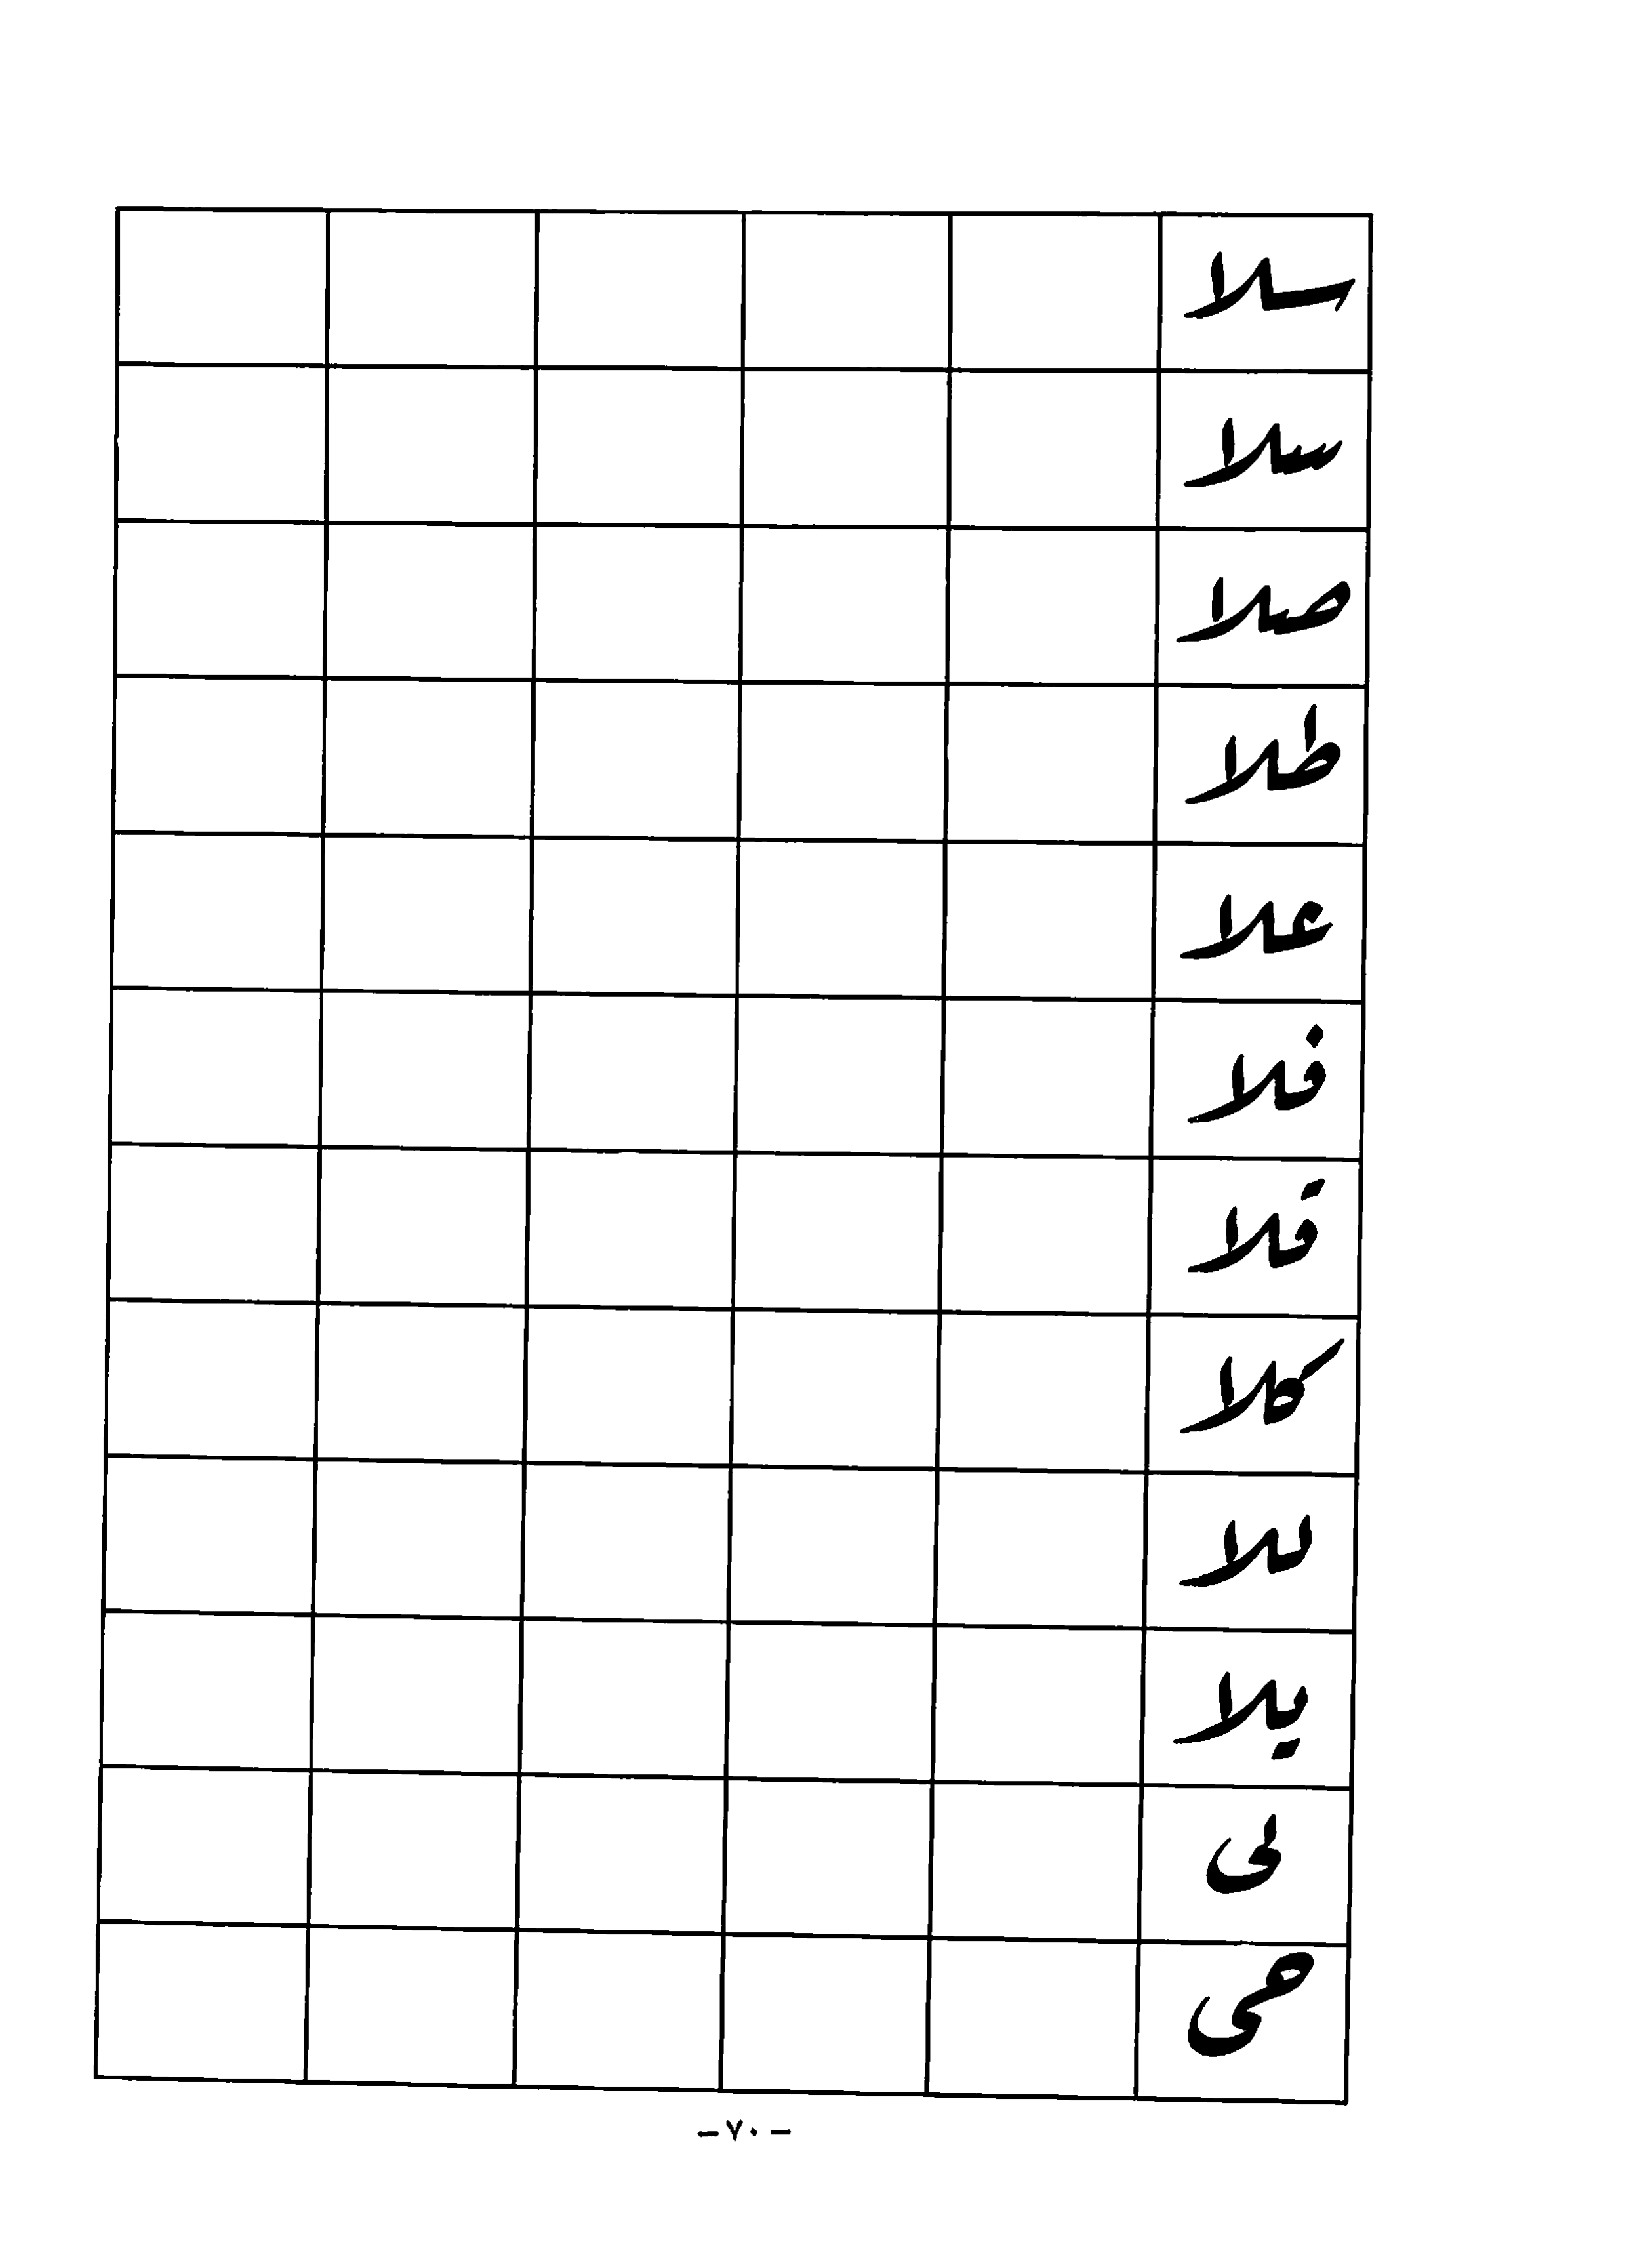 سلا
سلا
صلا
طلا
علا
فلا
قلا
کلا
للا
یلا
لی
حی
-٧٠-